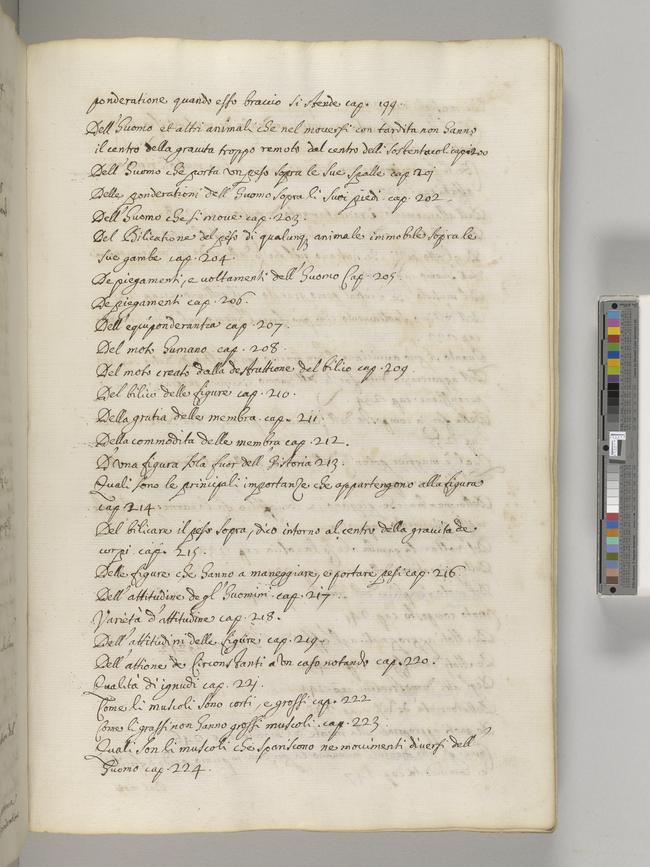 ponderatione quando esso braccio si stende cap. 199.
Dell'huomo et altri animali che nel moversi con tardita non hanno
il centro della gravita troppo remoto dal centro delli sostentacoli cap 200
Dell'huomo che porta un peso sopra le sue spalle cap 201
Delle ponderationi dell'huomo sopra li suoi piedi. cap. 202.
Dell'huomo che si move cap. 203.
Del Bilicatione del peso di qualunq; animale immobile sopra le
sue gambe cap. 204.
De piegamenti, e voltamenti dell'huomo Cap. 205.
De piegamenti cap. 206.
Dell'equiponderantia cap. 207.
Del moto humano cap. 208.
Del moto creato dalla destruttione del bilico cap. 209.
Del bilico delle figure cap. 210.
Della gratia delle membra. cap. 211.
Della commodita delle membra cap. 212.
D'una figura sola fuor dell'historia 213.
Quali sono le principali importanze che appartengono alla figura
cap 214.
Del bilicare il peso sopra, dico intorno al centro della gravita de
corpi cap. 215.
Delle figure che hanno a maneggiare, e portare pesi cap. 216.
Dell'attitudine degl'huomini cap. 217.
Varietà d'attitudine cap. 218.
Dell'attitudini delle figure cap. 219.
Dell'attione de Circonstanti a un caso notando cap. 220.
Qualità di ignudi cap. 221.
Come li muscoli sono corti, e grossi cap. 222
Come li grassi non hanno grossi muscoli. cap. 223.
Quali son li muscoli che spariscono ne movimenti diversi dell'
huomo cap. 224.